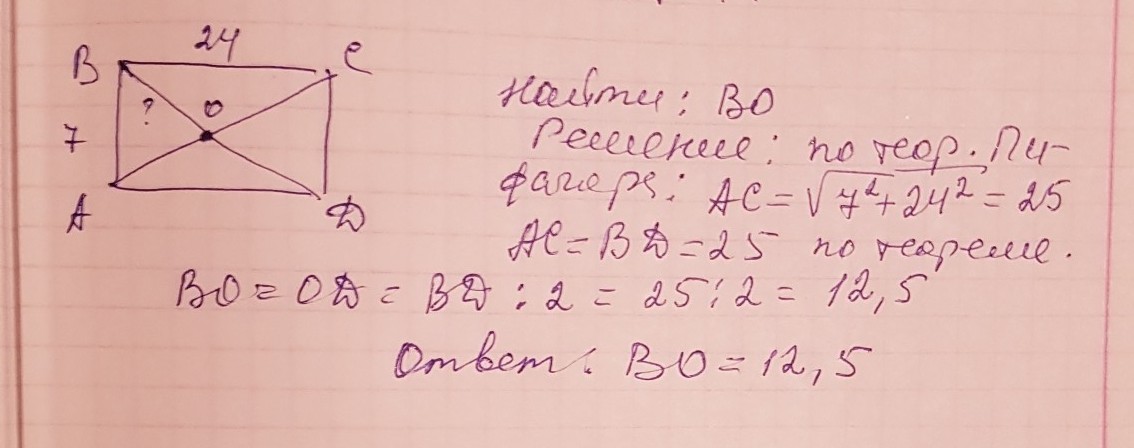 24
B
C
?
O
7
A
D
Найти: BO
Решение: по теор. Пи-
фагора: AC = √7²+24² = 25
AC = BD = 25 по теореме.
BO = OD = BD : 2 = 25 : 2 = 12,5
Ответ: BO = 12,5